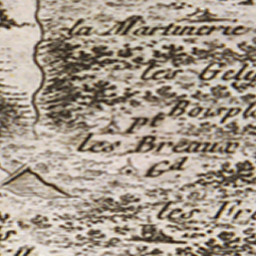 la Martinerie
les Gely
Bouple
pt
les Breaux
Gd
les Fr